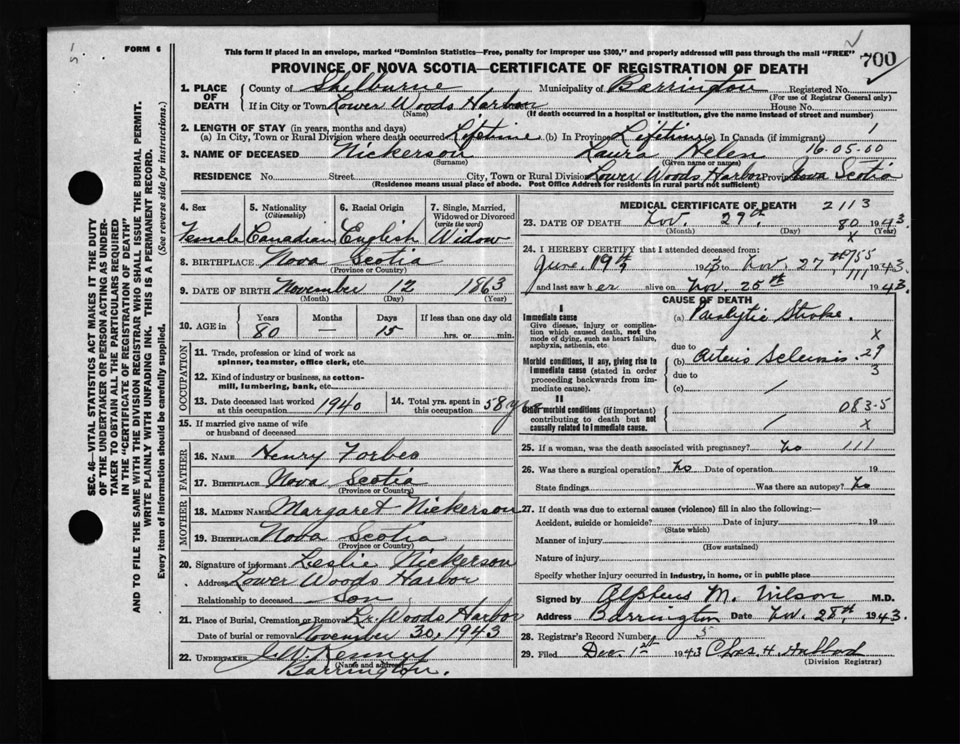 FORM 6
This form if placed in an envelope, marked "Dominion Statistics—Free, penalty for improper use $300," and properly addressed will pass through the mail "FREE"
700
PROVINCE OF NOVA SCOTIA—CERTIFICATE OF REGISTRATION OF DEATH
1. PLACE OF DEATH
County of Shelburne Municipality of Barrington Registered No.
(For use of Registrar General only)
If in City or Town Lower Woods Harbor House No.
(Name) (If death occurred in a hospital or institution, give the name instead of street and number)
2. LENGTH OF STAY (in years, months and days)
(a) In City, Town or Rural Division where death occurred Lifetime (b) In Province Lifetime (c) In Canada (if immigrant) 1
3. NAME OF DECEASED Nickerson Laura Helen 16.05.00
(Surname) (Given name or names)
RESIDENCE No. Street City, Town or Rural Division Lower Woods Harbor Province Nova Scotia
(Residence means usual place of abode. Post Office Address for residents in rural parts not sufficient)
4. Sex Female
5. Nationality (Citizenship) Canadian
6. Racial Origin English
7. Single, Married, Widowed or Divorced (write the word) Widow
8. BIRTHPLACE Nova Scotia
(Province or Country)
9. DATE OF BIRTH November 12 1863
(Month) (Day) (Year)
10. AGE in Years 80 Months — Days 15 If less than one day old
hrs. or min.
OCCUPATION
11. Trade, profession or kind of work as spinner, teamster, office clerk, etc.
12. Kind of industry or business, as cotton-mill, lumbering, bank, etc.
13. Date deceased last worked at this occupation 1940
14. Total yrs. spent in this occupation 58 yrs
15. If married give name of wife or husband of deceased
FATHER
16. NAME Henry Forbes
17. BIRTHPLACE Nova Scotia
(Province or Country)
MOTHER
18. MAIDEN NAME Margaret Nickerson
19. BIRTHPLACE Nova Scotia
(Province or Country)
20. Signature of informant Leslie Nickerson
Address Lower Woods Harbor
Relationship to deceased Son
21. Place of Burial, Cremation or Removal Lr. Woods Harbor
Date of burial or removal November 30, 1943
22. UNDERTAKER J. W. Kenney
(Name and address)
Barrington.
MEDICAL CERTIFICATE OF DEATH 2113
23. DATE OF DEATH Nov. 27th 80 1943
(Month) (Day) (Year)
x
24. I HEREBY CERTIFY that I attended deceased from:
June, 19th to Nov. 27th 1943
111
and last saw her alive on Nov. 25th 1943.
CAUSE OF DEATH
I
Immediate cause
Give disease, injury or complication which caused death, not the mode of dying, such as heart failure, asphyxia, asthenia, etc.
(a) Paralytic Stroke.
x
due to
Morbid conditions, if any, giving rise to immediate cause (stated in order proceeding backwards from immediate cause).
(b) Arterio Sclerosis. 29
3
due to
(c) /
II
Other morbid conditions (if important) contributing to death but not causally related to immediate cause.
083.5
/ x
25. If a woman, was the death associated with pregnancy? No 111
26. Was there a surgical operation? No Date of operation 19
State findings Was there an autopsy? No
27. If death was due to external causes (violence) fill in also the following:—
Accident, suicide or homicide? Date of injury 19
(State which)
Manner of injury
(How sustained)
Nature of injury
Specify whether injury occurred in industry, in home, or in public place
Signed by Alpheus M. Wilson M.D.
Address Barrington Date Nov. 28th, 1943.
28. Registrar's Record Number 5
29. Filed Dec. 1st 1943 Chas. H. Hubbard
(Division Registrar)
SEC. 46—VITAL STATISTICS ACT MAKES IT THE DUTY
OF THE UNDERTAKER OR PERSON ACTING AS UNDER-
TAKER TO OBTAIN ALL THE PARTICULARS REQUIRED
IN THE "CERTIFICATE OF REGISTRATION OF DEATH"
AND TO FILE THE SAME WITH THE DIVISION REGISTRAR WHO SHALL ISSUE THE BURIAL PERMIT.
WRITE PLAINLY WITH UNFADING INK. THIS IS A PERMANENT RECORD.
Every item of information should be carefully supplied. (See reverse side for instructions.)